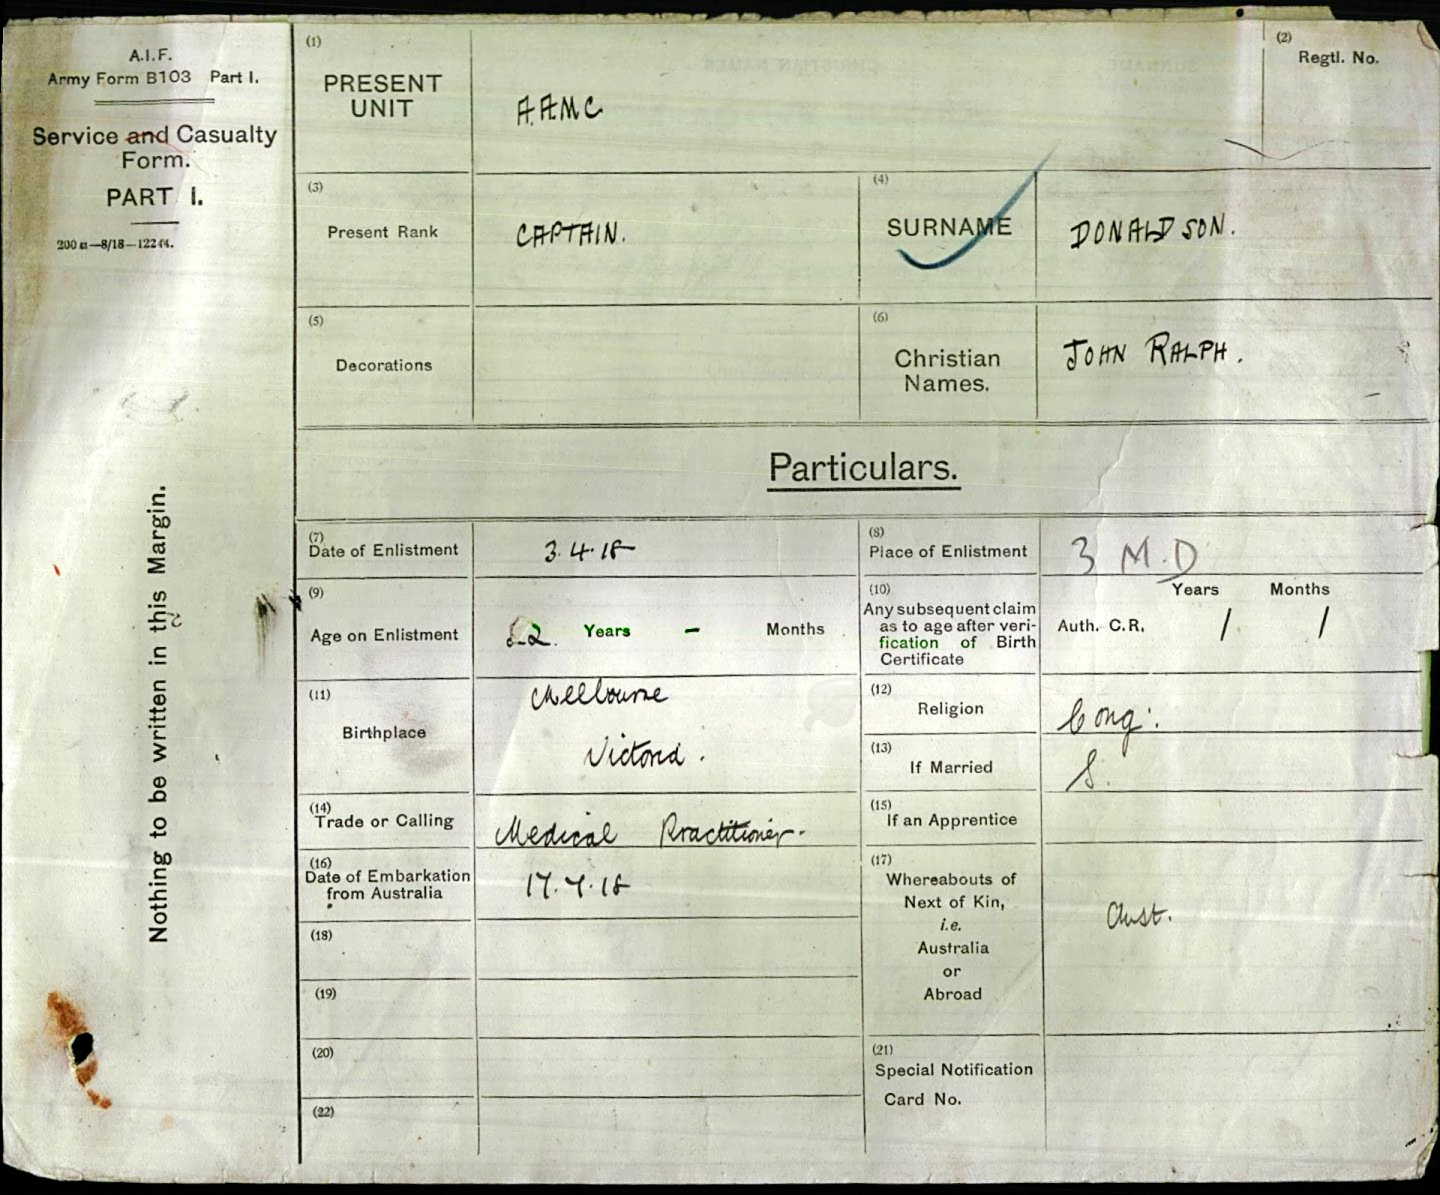 A.I.F.
Army Form B103 Part I.
Service and Casualty
Form.
PART I.
Nothing to be written in this Margin.
(1)
PRESENT
UNIT
A.A.M.C
(2)
Regtl. No.
(3)
Present Rank
CAPTAIN.
(4)
SURNAME
DONALDSON.
(5)
Decorations
(6)
Christian
Names.
JOHN RALPH.
Particulars.
(7)
Date of Enlistment
3.4.18
(8)
Place of Enlistment
3 M.D
(9)
Age on Enlistment
Years - Months
(10)
Any subsequent claim
as to age after veri-
fication of Birth
Certificate
Years Months
Auth. C.R. / /
(11)
Birthplace
Melbourne
Victoria.
(12)
Religion
Cong:.
(13)
If Married
S.
(14)
Trade or Calling
Medical Practitioner.
(15)
If an Apprentice
(16)
Date of Embarkation
from Australia
(17)
Whereabouts of
Next of Kin,
i.e.
Australia
or
Abroad
Aust.
(18)
(19)
(20)
(21)
Special Notification
Card No.
(22)